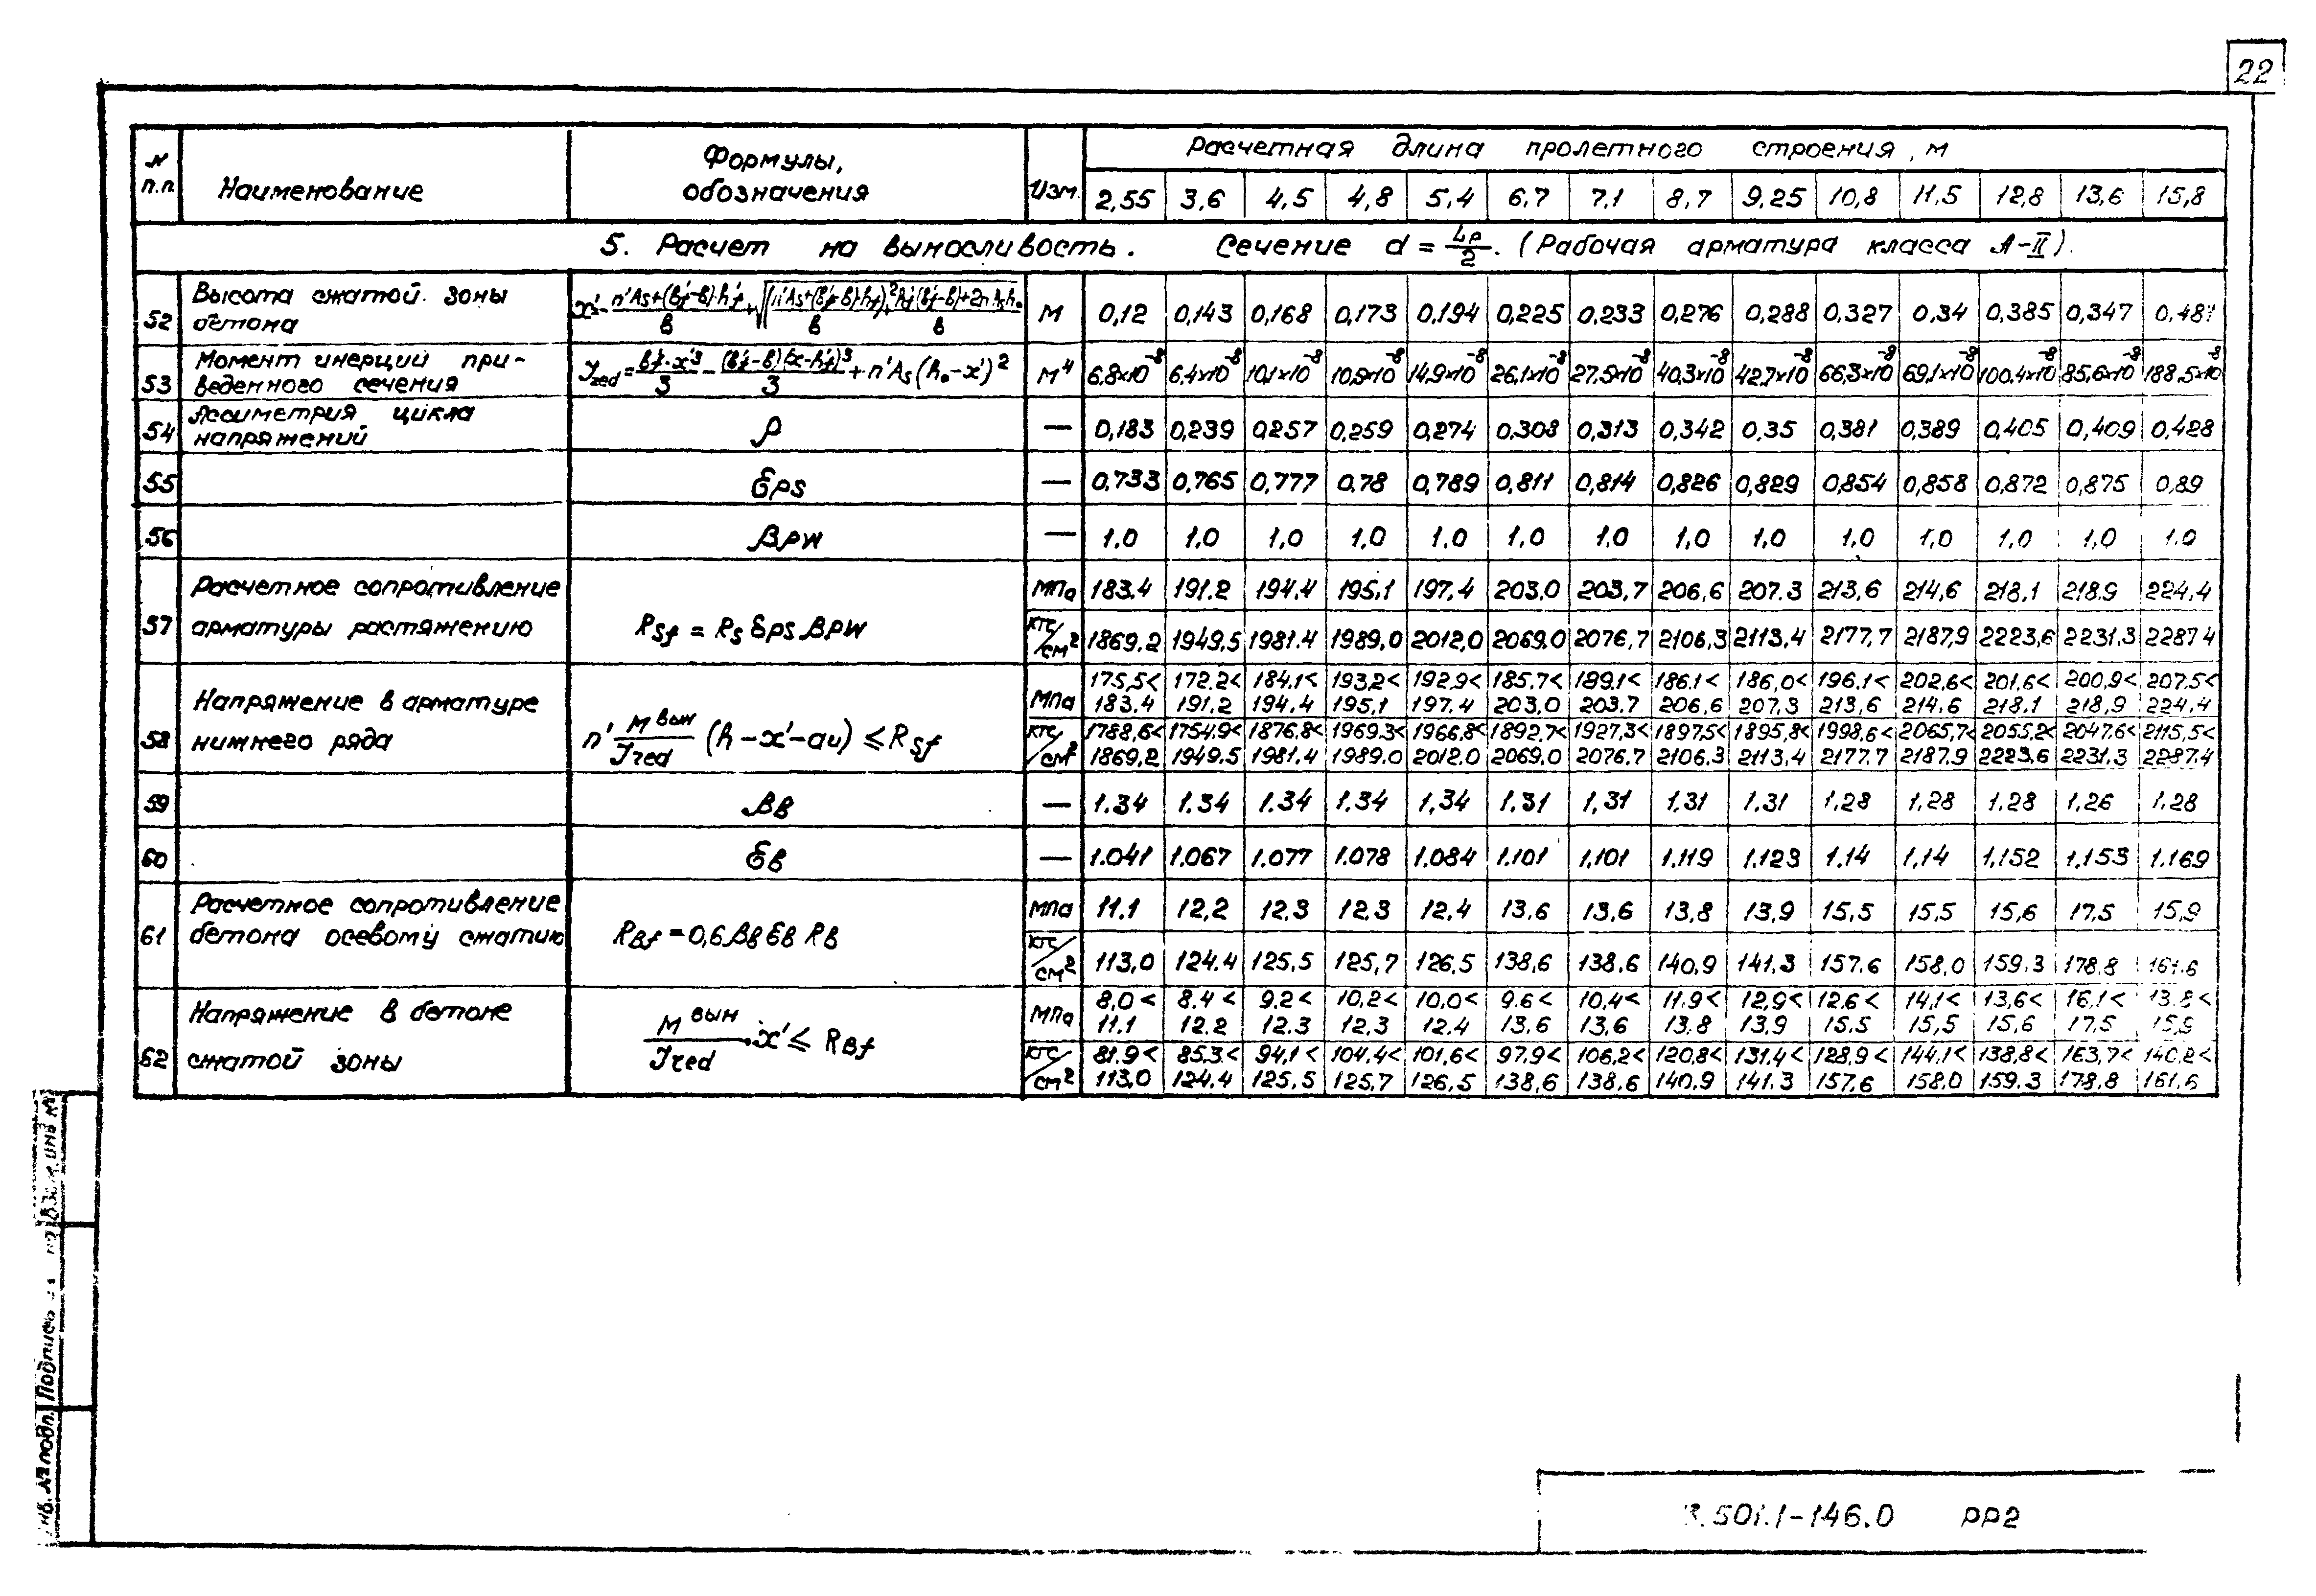 22
N п.п. Наименование Формулы, обозначения Изм. Расчетная длина пролетного строения, м
2,55 3,6 4,5 4,8 5,4 6,7 7,1 8,7 9,25 10,8 11,5 12,8 13,6 15,8
5. Расчет на выносливость. Сечение d = Lp/2. (Рабочая арматура класса А-II).
52 Высота сжатой зоны бетона м 0,12 0,143 0,168 0,173 0,194 0,225 0,233 0,276 0,288 0,327 0,34 0,385 0,347
53 Момент инерции приведенного сечения Jred = b'f·x'³/3 - (b'f-b)(x-h'f)³/3 + n'As(h₀-x')² м⁴ 6,8×10⁻⁸ 6,4×10⁻⁸ 10,1×10⁻⁸ 10,9×10⁻⁸ 14,9×10⁻⁸ 26,1×10⁻⁸ 27,5×10⁻⁸ 40,3×10⁻⁸ 42,7×10⁻⁸ 66,3×10⁻⁸ 69,1×10⁻⁸ 100,4×10⁻⁸ 85,6×10⁻⁸ 188,5×10⁻⁸
54 Ассиметрия цикла напряжений ρ — 0,183 0,239 0,257 0,259 0,274 0,308 0,313 0,342 0,35 0,381 0,389 0,405 0,409 0,428
55 εps — 0,733 0,765 0,777 0,78 0,789 0,811 0,814 0,826 0,829 0,854 0,858 0,872 0,875 0,89
56 βpw — 1,0 1,0 1,0 1,0 1,0 1,0 1,0 1,0 1,0 1,0 1,0 1,0 1,0 1,0
57 Расчетное сопротивление арматуры растяжению Rsf = Rs εps βpw
МПа 183,4 191,2 194,4 195,1 197,4 203,0 203,7 206,6 207,3 213,6 214,6 218,1 218,9 224,4
кгс/см² 1869,2 1949,5 1981,4 1989,0 2012,0 2069,0 2076,7 2106,3 2113,4 2177,7 2187,9 2223,6 2231,3 2287,4
58 Напряжение в арматуре нижнего ряда n' Mвын/Jred (h-x'-au) ≤ Rsf
МПа 175,5< 172,2< 184,1< 193,2< 192,9< 185,7< 189,1< 186,1< 186,0< 196,1< 202,6< 201,6< 200,9< 207,5<
183,4 191,2 194,4 195,1 197,4 203,0 203,7 206,6 207,3 213,6 214,6 218,1 218,9 224,4
кгс/см² 1788,6< 1754,9< 1876,8< 1969,3< 1966,8< 1892,7< 1927,3< 1897,5< 1895,8< 1998,6< 2065,7< 2055,2< 2047,6< 2115,5<
1869,2 1949,5 1981,4 1989,0 2012,0 2069,0 2076,7 2106,3 2113,4 2177,7 2187,9 2223,6 2231,3 2287,4
59 βв — 1.34 1.34 1.34 1.34 1,34 1.31 1,31 1,31 1.31 1,28 1,28 1.28 1,26 1,28
60 εв — 1.041 1.067 1.077 1.078 1.084 1.101 1,101 1.119 1.123 1.14 1,14 1,152 1,153 1.169
61 Расчетное сопротивление бетона осевому сжатию Rвf = 0,6 βв εв Rв
МПа 11.1 12,2 12,3 12,3 12,4 13,6 13,6 13,8 13,9 15,5 15,5 15,6 17,5 15,9
кгс/см² 113,0 124,4 125,5 125,7 126,5 138,6 138,6 140,9 141,3 157,6 158,0 159,3 178,8 161,6
62 Напряжение в бетоне сжатой зоны Mвын/Jred · x' ≤ Rвf
МПа 8,0< 8,4< 9,2< 10,2< 10,0< 9,6< 10,4< 11,9< 12,9< 12,6< 14,1< 13,6< 16,1< 13,8<
11.1 12.2 12.3 12,3 12,4 13,6 13,6 13,8 13,9 15,5 15,5 15,6 17,5 15,9
кгс/см² 81,9< 85,3< 94,1< 104,4< 101,6< 97,9< 106,2< 120,8< 131,4< 128,9< 144,1< 138,8< 163,7< 140,2<
113,0 124,4 125,5 125,7 126,5 138,6 138,6 140,9 141,3 157,6 158,0 159,3 178,8 161,6
Инв. № подл. Подпись
Взам. инв №
3.501.1-146.0 РР2